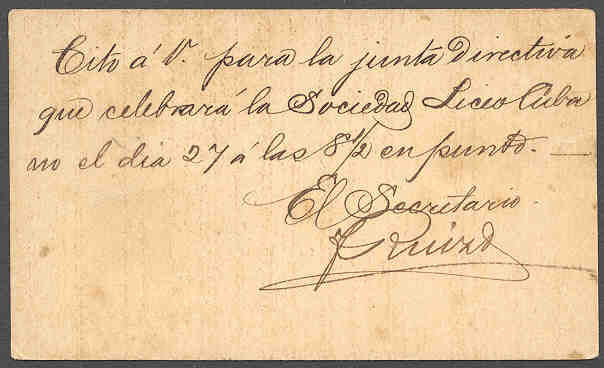 Cito á V. para la junta Directiva
que celebrará la Sociedad Liceo Cuba
no el dia 27 á las 8 1/2 en punto.
El Secretario.